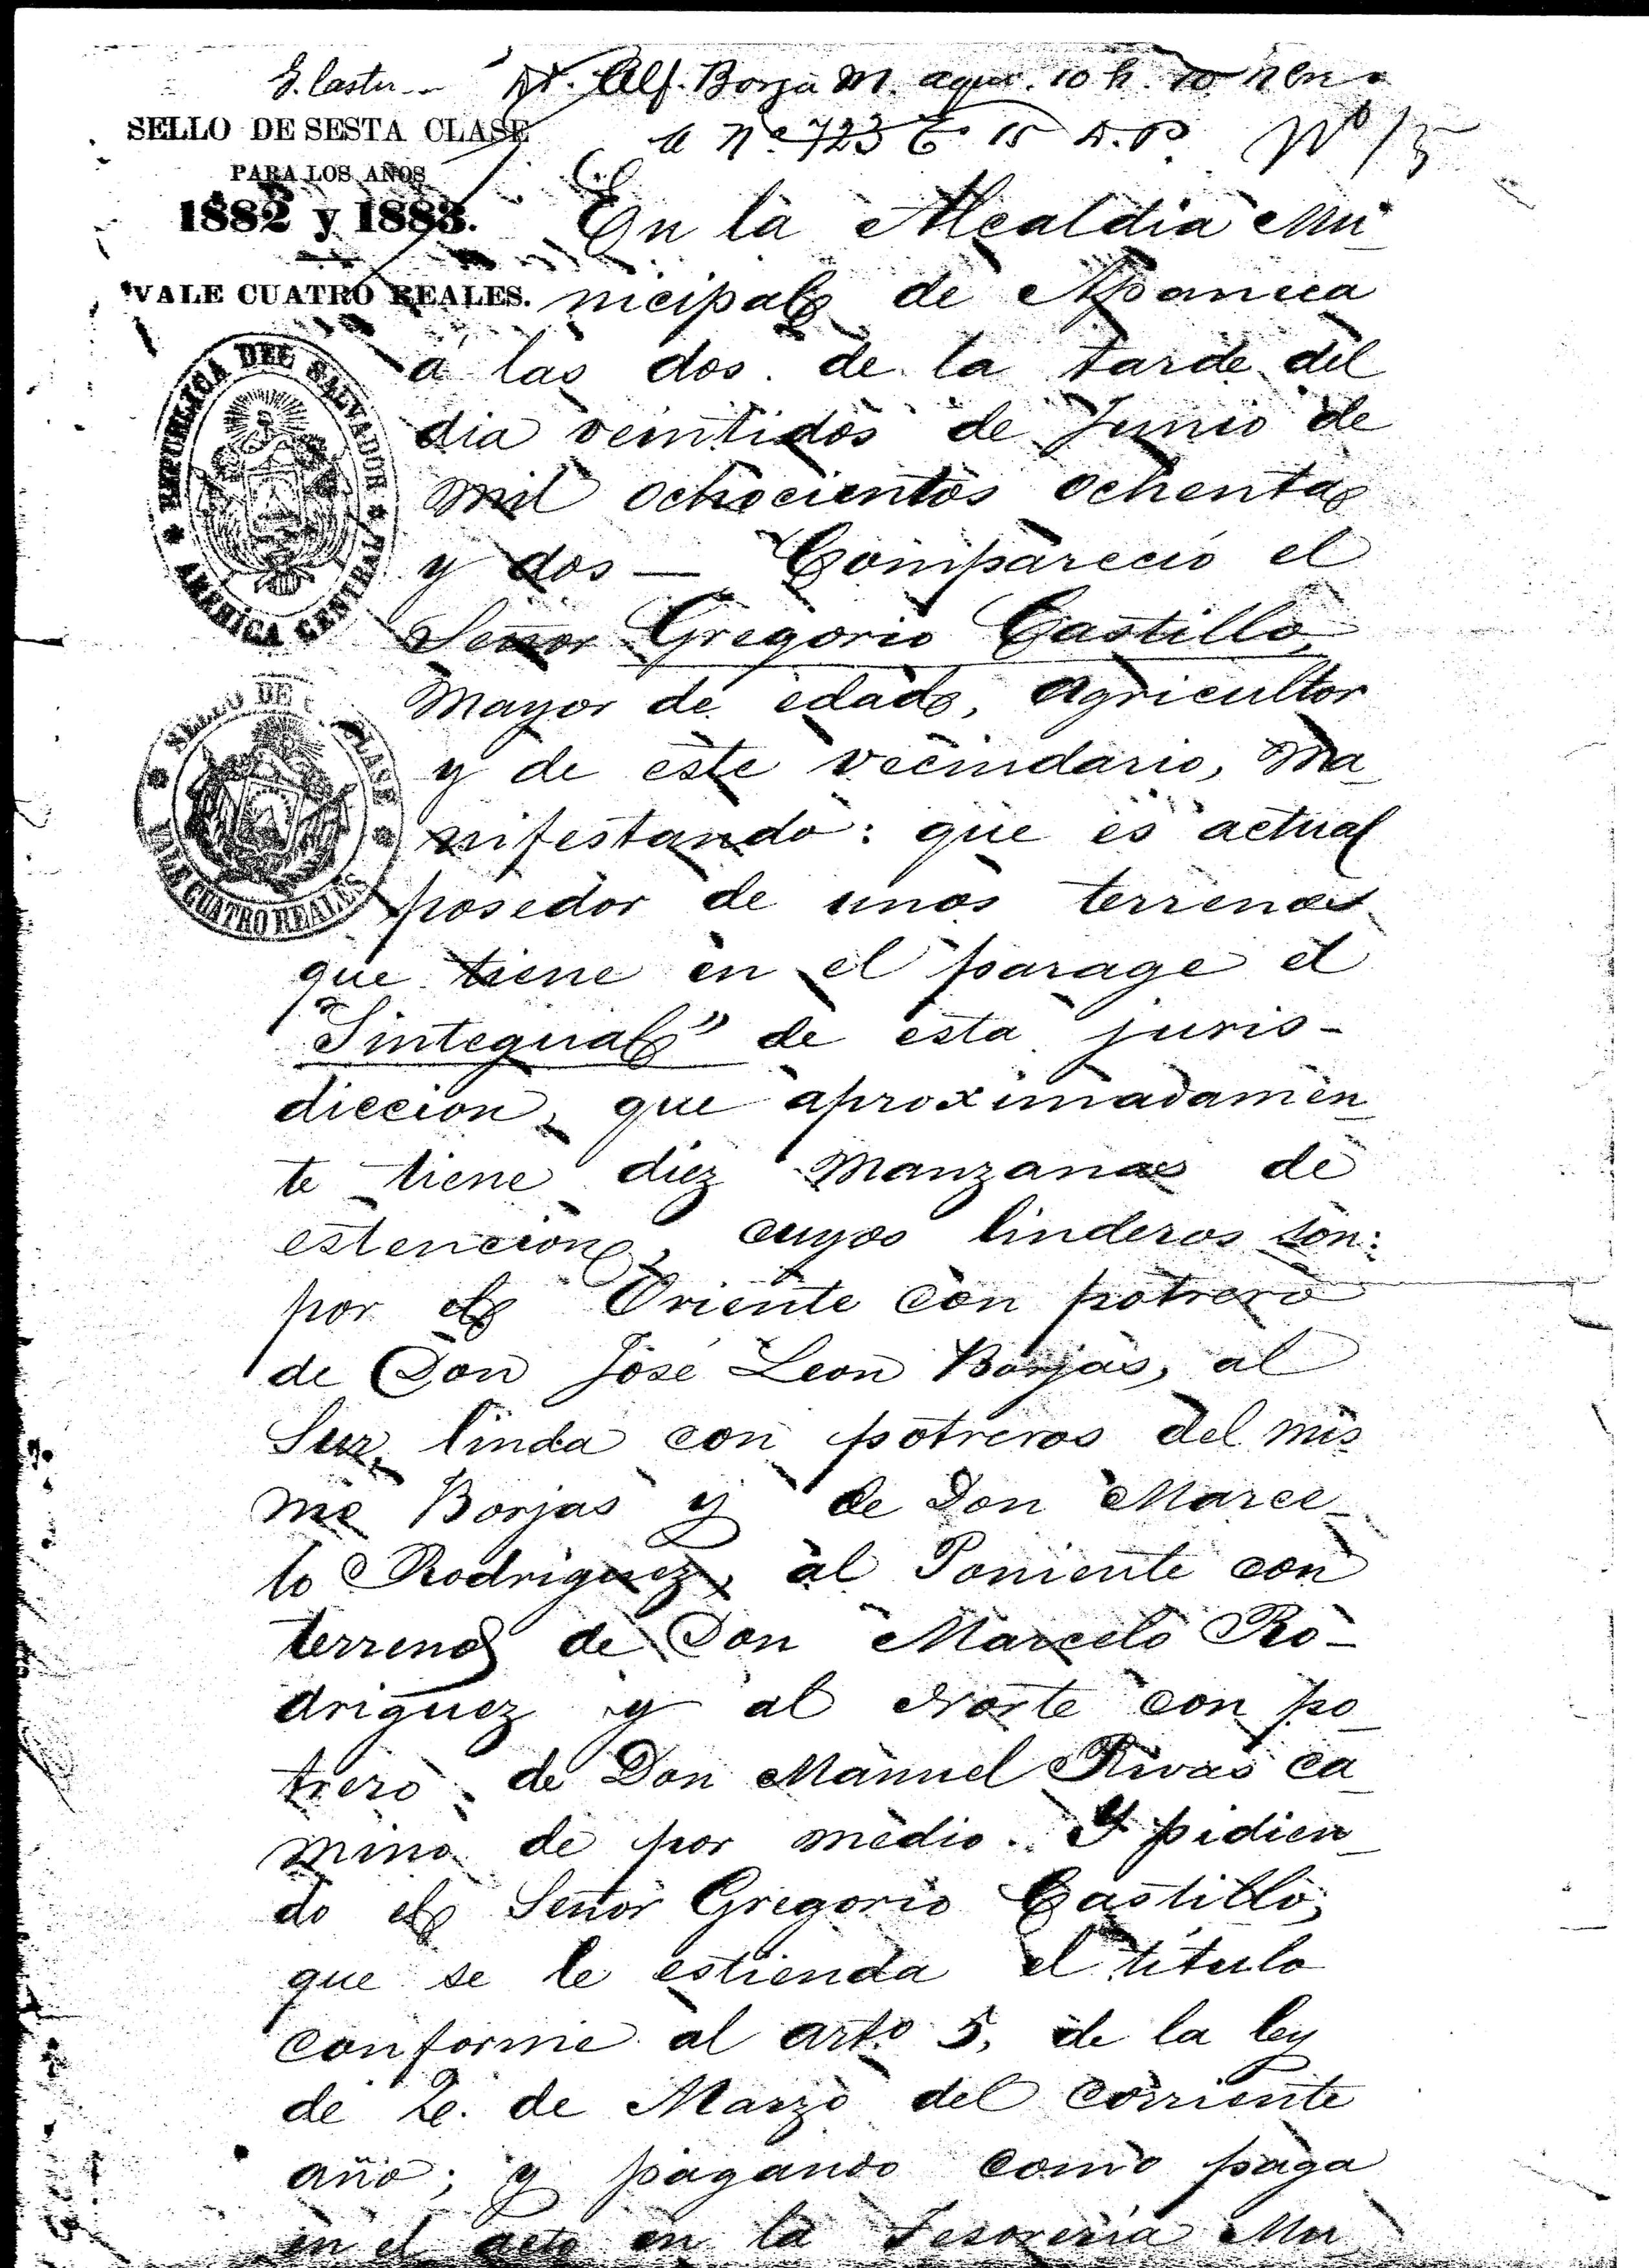 Alf. Borja M. 10 h. 10
SELLO DE SESTA CLASE
a n.º 723 Nº 15
PARA LOS AÑOS
1882 y 1883.
VALE CUATRO REALES.
REPUBLICA DEL SALVADOR
AMERICA CENTRAL
SELLO DE CLASE
VALE CUATRO REALES
En la Alcaldia Mu-
nicipal de Apaneca
á las dos de la tarde del
dia veintidos de Junio de
mil ochocientos ochenta
y dos — Compareció el
Señor Gregorio Castillo,
mayor de edad, agricultor
y de este vecindario, ma-
nifestando: que es actual
posedor de unos terrenos
que tiene en el parage el
"Sintegual" de esta juris-
diccion, que aproximadamen-
te tiene diez manzanas de
estencion, cuyos linderos son:
por el Oriente con potrero
de Don José Leon Borjas, al
Sur, linda con potreros del mis-
mo Borjas y de Don Marce-
lo Rodriguez, al Poniente con
terrenos de Don Marcelo Ro-
driguez y al Norte con po-
trero de Don Manuel Rivas ca-
mino de por medio. Y pidien-
do el Señor Gregorio Castillo,
que se le estienda el título
conforme al artº 5, de la ley
de 2. de Marzo del corriente
año; y pagando como paga
en el acto en la Tesoreria Mu-